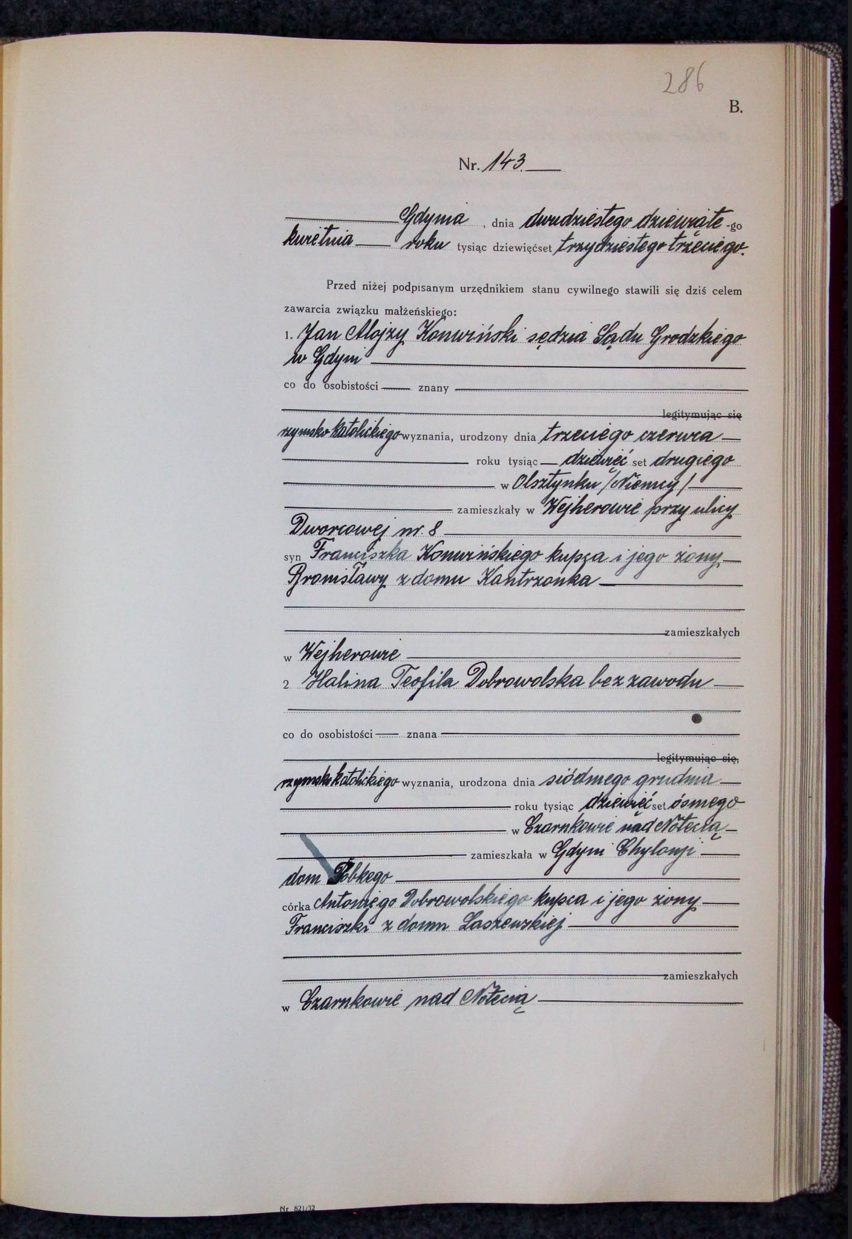 286
B.
Nr. 143.
Gdynia , dnia dwudziestego dziewiąte -go
kwietnia roku tysiąc dziewięćset trzydziestego trzeciego.
Przed niżej podpisanym urzędnikiem stanu cywilnego stawili się dziś celem
zawarcia związku małżeńskiego:
1. Jan Alojzy Konwiński sędzia Sądu Grodzkiego
w Gdyni
co do osobistości znany
legitymując się
rzymsko katolickiego wyznania, urodzony dnia trzeciego czerwca
roku tysiąc dziewięć set drugiego
w Olsztynku /Niemcy/
zamieszkały w Wejherowie przy ulicy
Dworcowej nr. 8
syn Franciszka Konwińskiego kupca i jego żony
Bronisławy z domu Kantrzonka
zamieszkałych
w Wejherowie
2 Halina Teofila Dobrowolska bez zawodu
co do osobistości znana
legitymując się,
rzymsko katolickiego wyznania, urodzona dnia siódmego grudnia
roku tysiąc dziewięć set ósmego
w Czarnkowie nad Notecią
zamieszkała w Gdyni Chylonji
dom
córka Antoniego Dobrowolskiego kupca i jego żony
Franciszki z domu Laszewskiej
zamieszkałych
w Czarnkowie nad Notecią
Nr 821/32